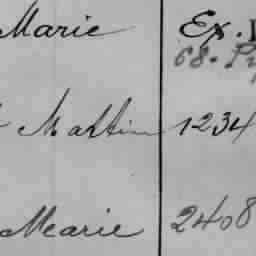 Marie Ex.
68.
Martin 1234
Marie 2408